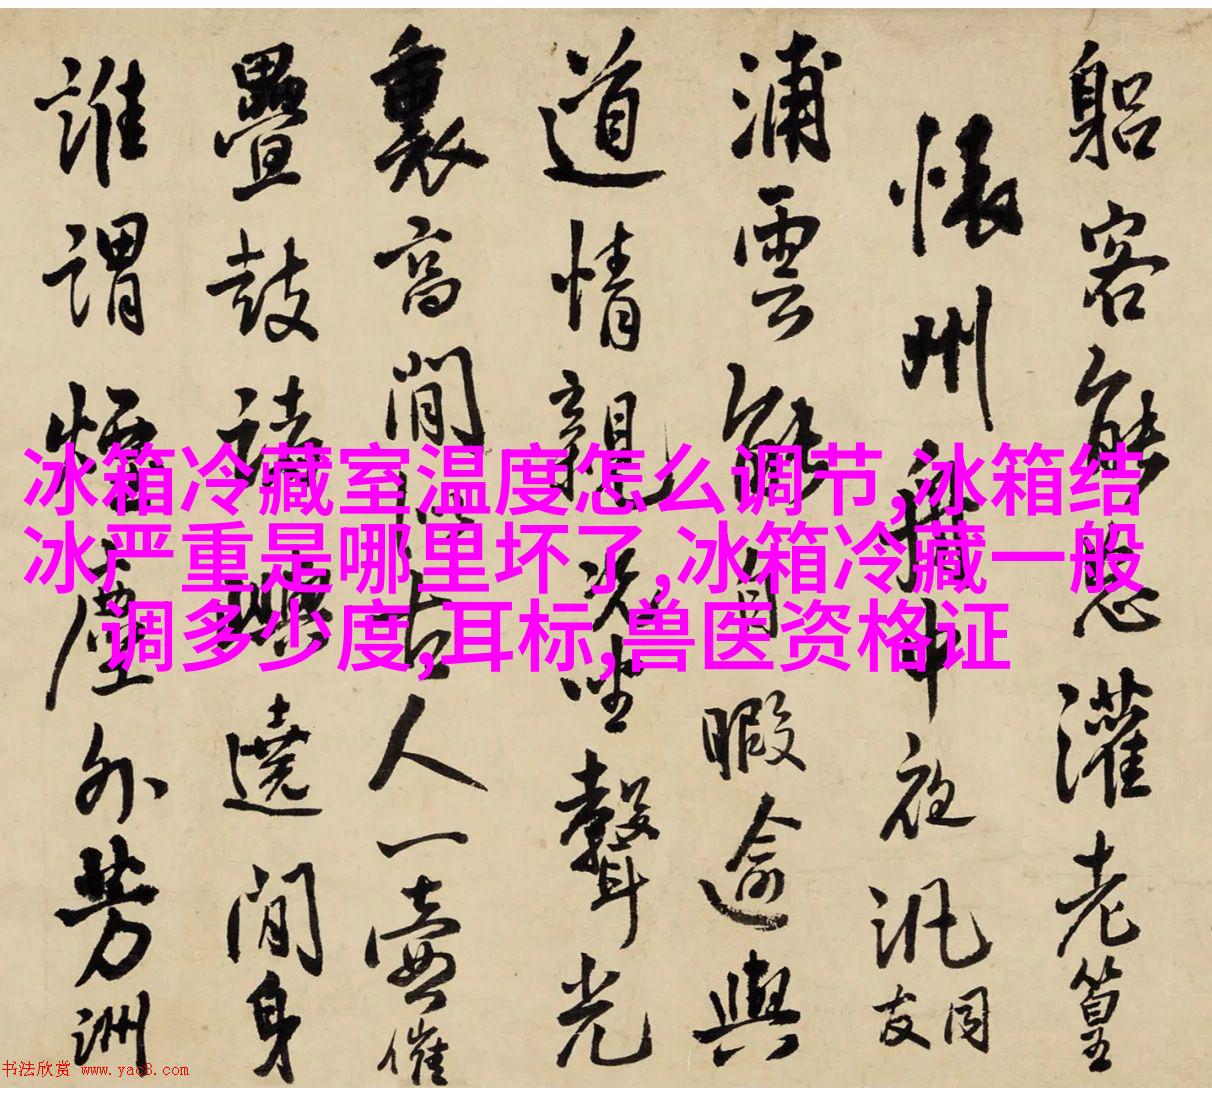 躳客能愁灌老篁
懷州
夜汎
友同
浦雲
暇逾與
道情親
坐聲光
裏高閒
人一壺催
疊鼓
遶閒身
誰謂煙塵外芳洲
冰箱冷藏室温度怎么调节,冰箱结
冰严重是哪里坏了,冰箱冷藏一般
调多少度,耳标,兽医资格证
书法欣赏 www.yac8.com